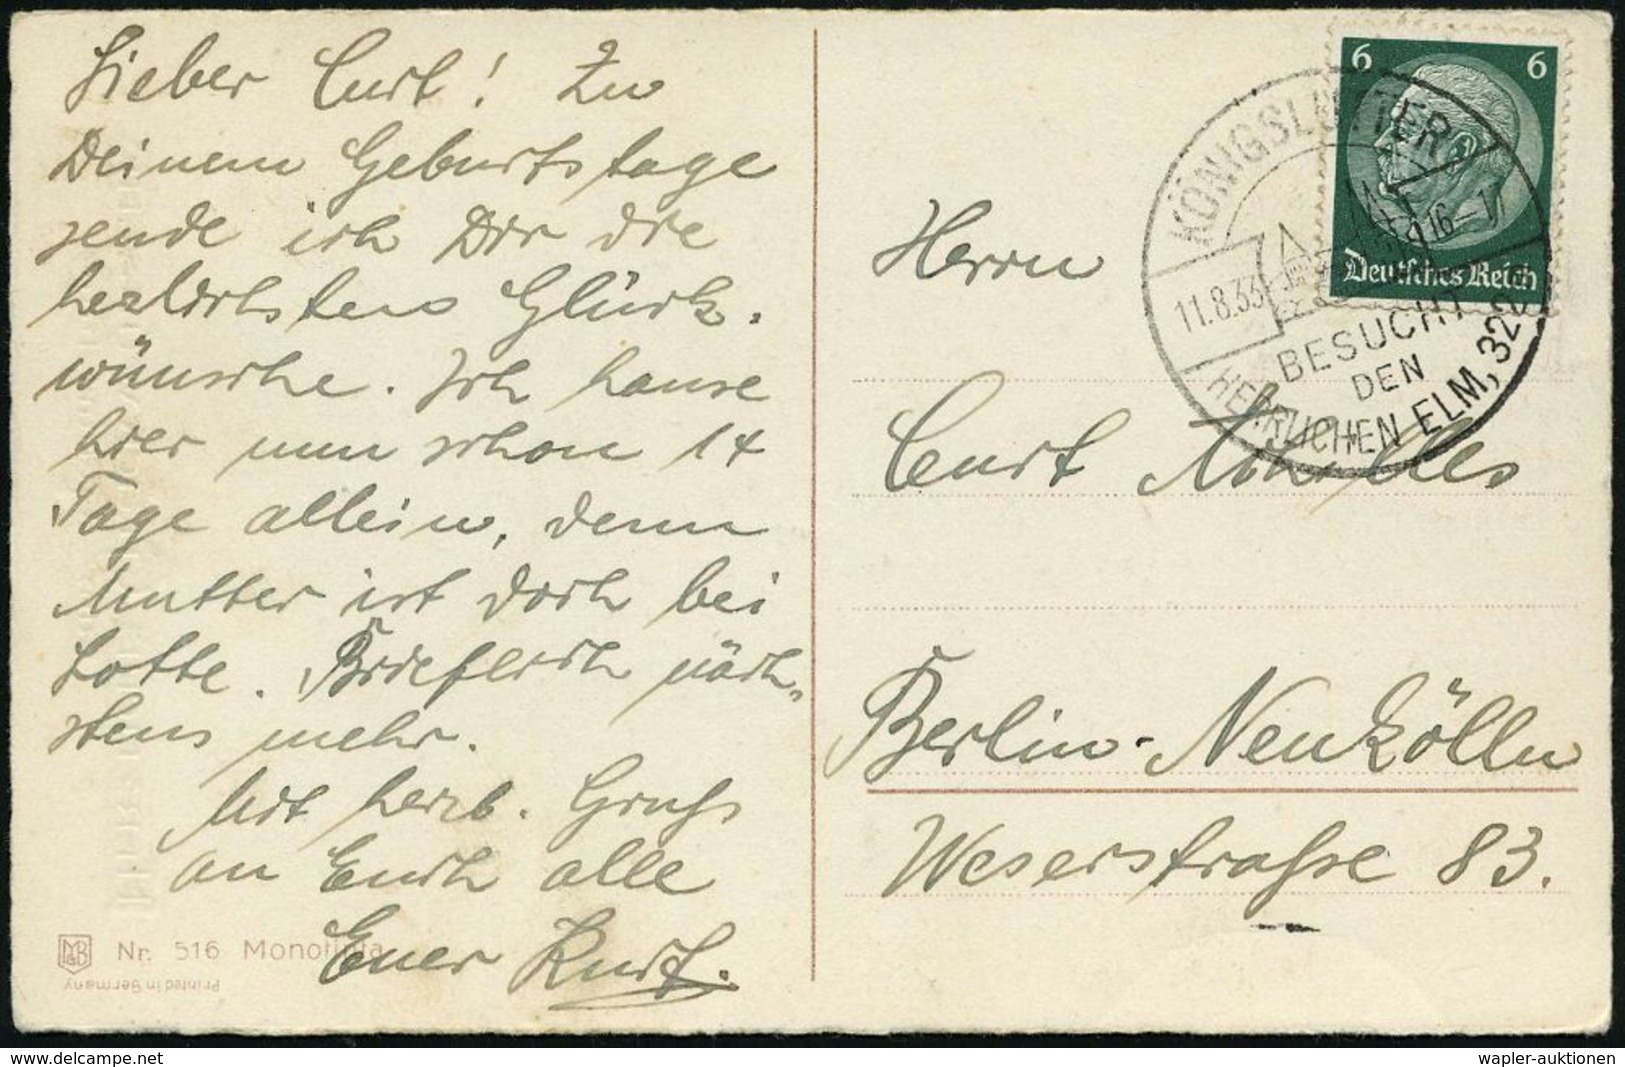 Lieber Curt! Zu
Deinem Geburtstage
sende ich Dir die
herzlichsten Glück-
wünsche. Ich hause
hier nun schon 14
Tage allein, denn
Mutter ist doch bei
Lotte. Brieflich näch-
stens mehr.
Mit herzl. Gruß
an Euch alle
Euer Kurt.
Nr. 516 Monotinta
Printed in Germany
6 6
Deutsches Reich
KÖNIGSLUTTER
11.8.33 16-17
BESUCHT
DEN
HERRLICHEN ELM, 322
Herrn
Curt
Berlin-Neukölln
Weserstraße 83.
delcampe.net
wapler-auktionen